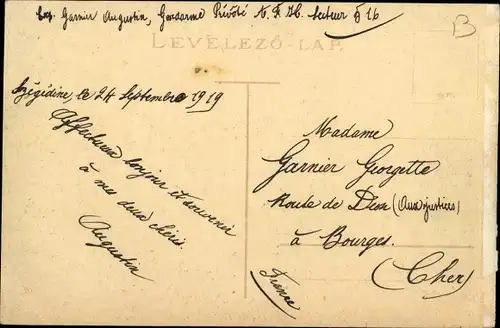 Exp. Garnier Augustin, Gendarme Prévôté A. F. H. Secteur 516
LEVELEZŐ-LAP.
B
Szégédine, le 24 Septembre 1919
Affectueux bonjour et souvenir
à mes deux chéris.
Augustin
Madame
Garnier Georgette
Route de Dun (Aux Justices)
à Bourges.
(Cher)
France